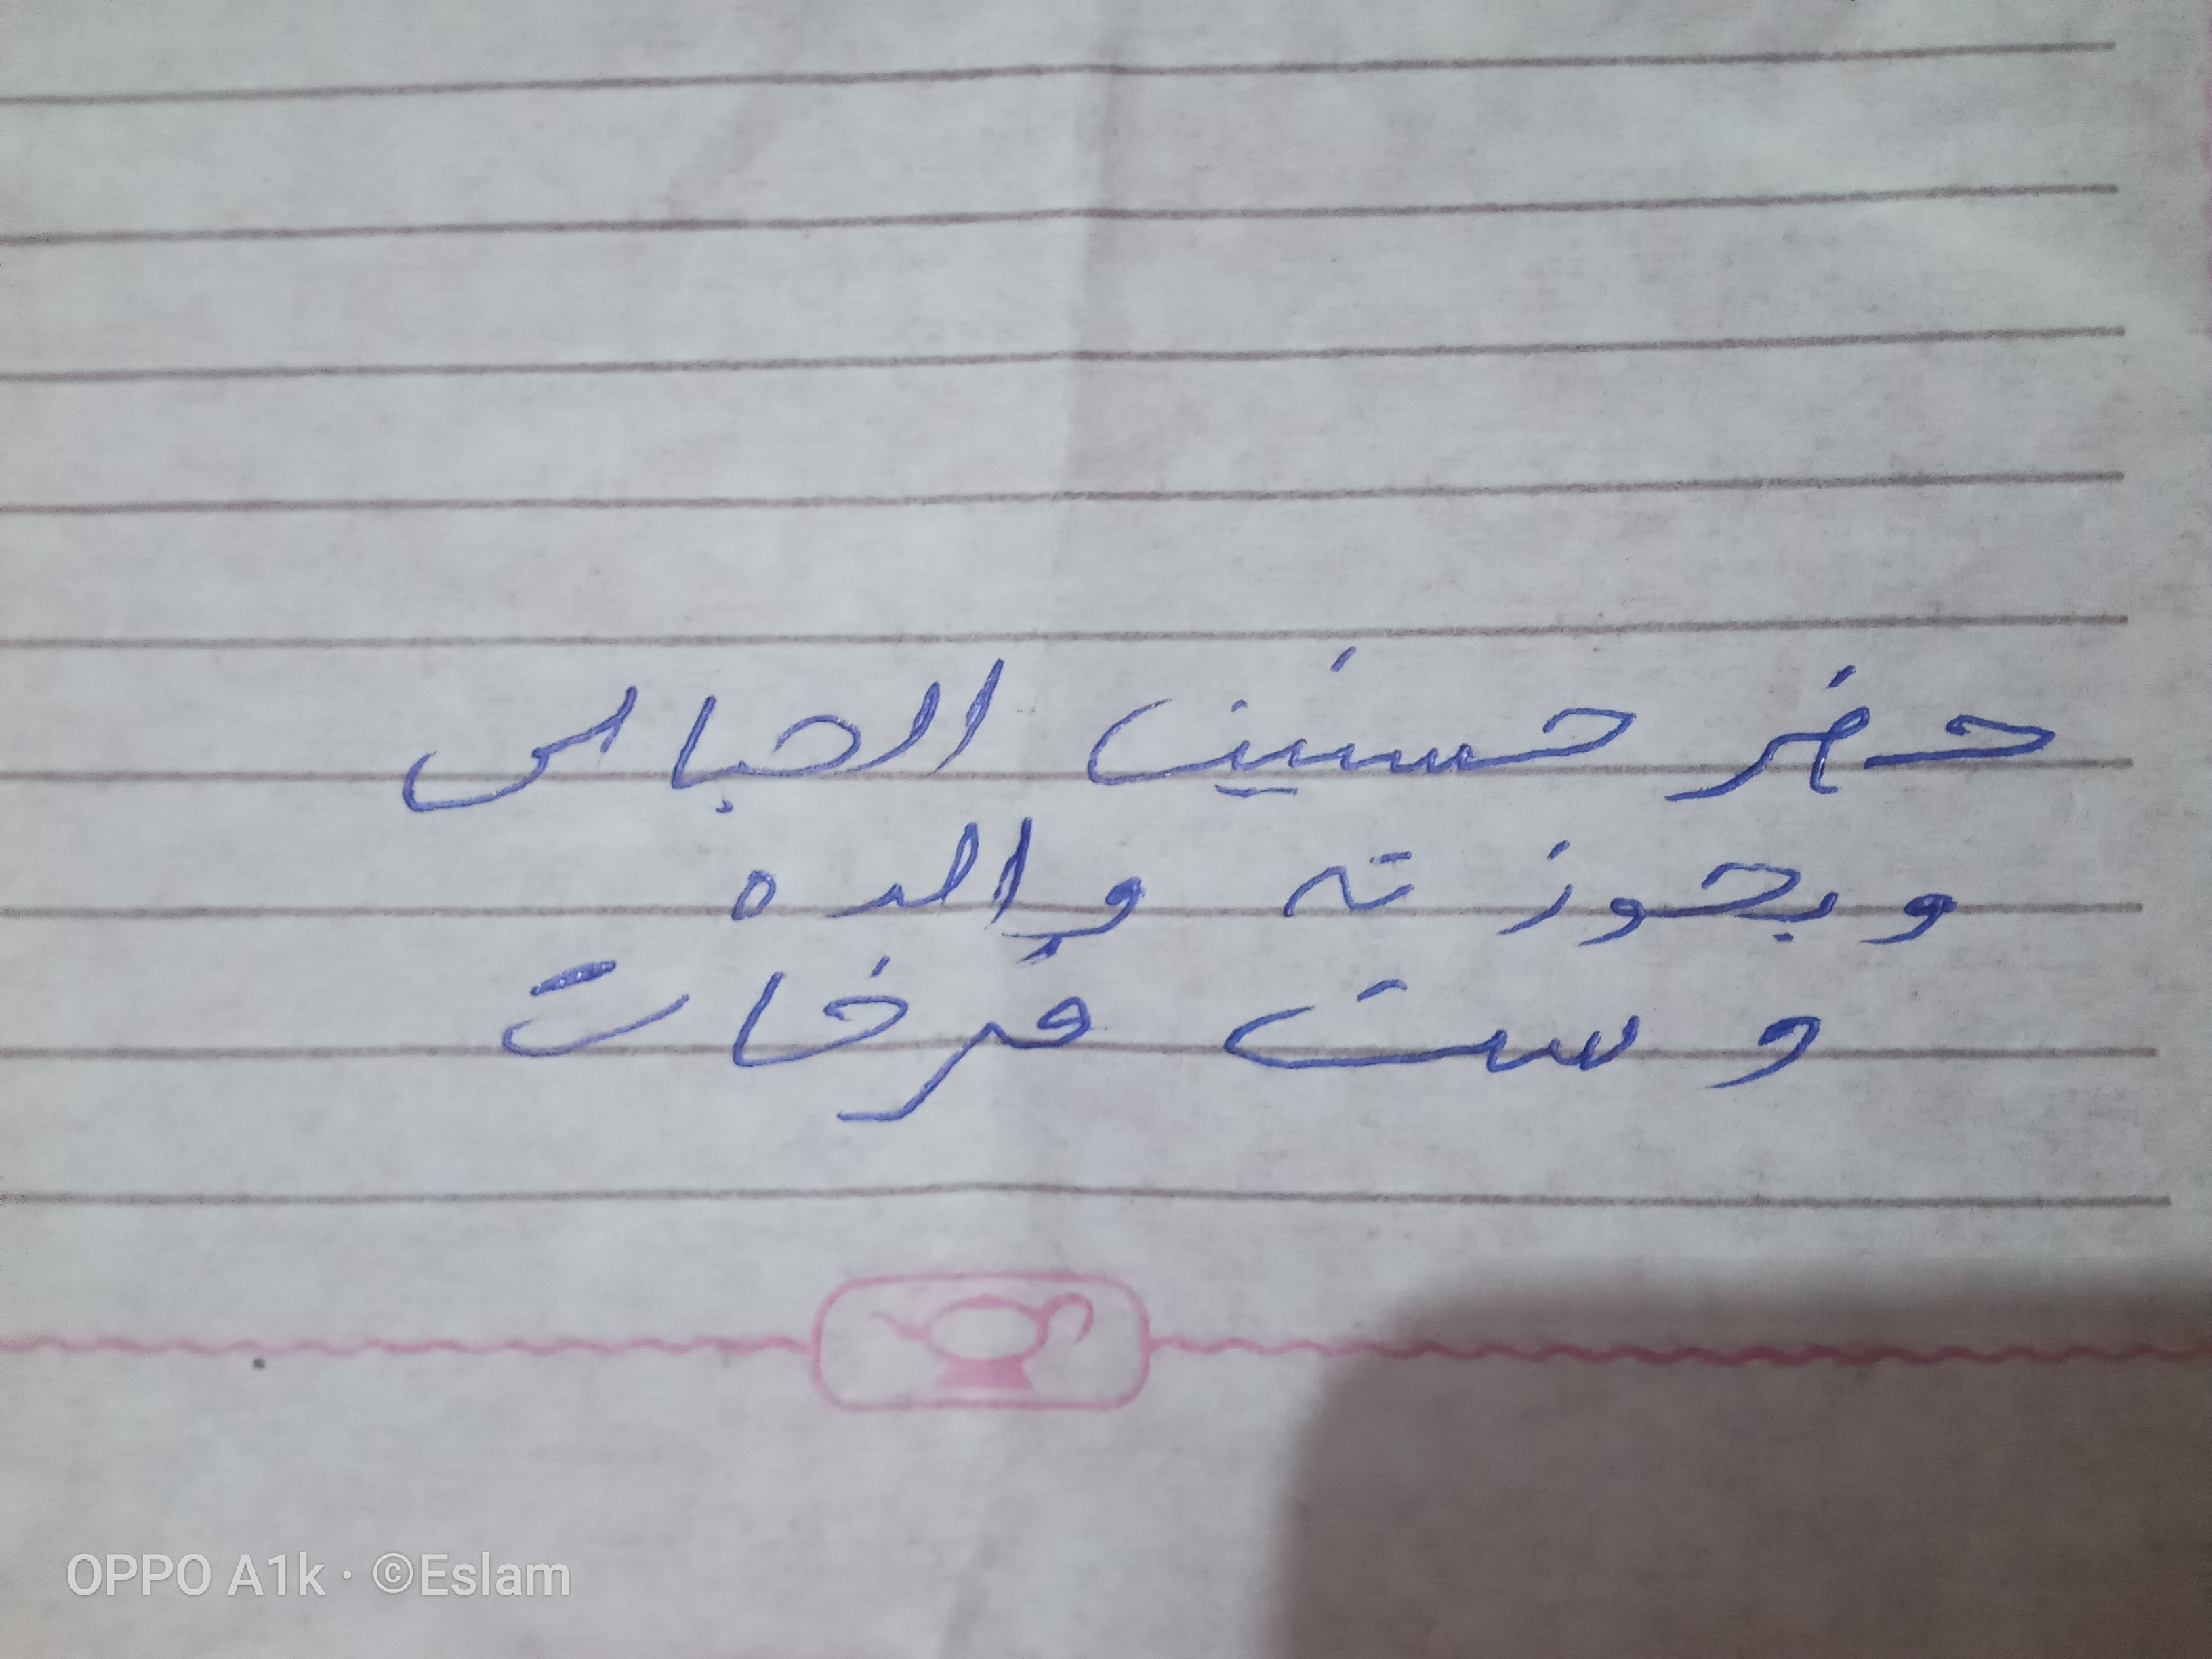 حضر حسنين الحبالى
وبحوزته والده
وست فرخات
OPPO A1k · ©Eslam